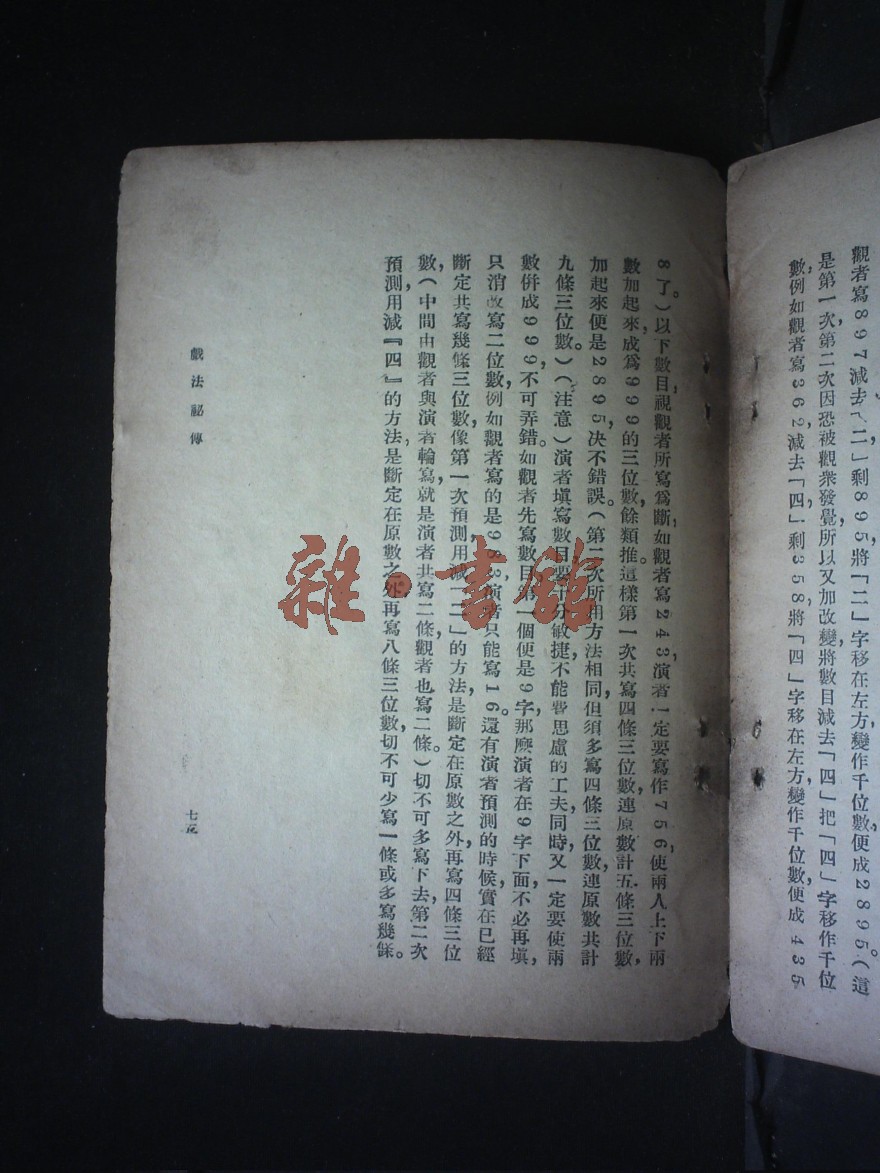 觀者寫897減去「二」剩895將「二」字移在左方變作千位數便成2895。(這
是第一次第二次因恐被觀衆發覺所以又加改變將數目減去「四」把「四」字移作千位
數,例如觀者寫362,減去「四」剩358,將「四」字移在左方,變作千位數,便成 435
8了。)以下數目,視觀者所寫爲斷,如觀者寫243,演者一定要寫作756,使兩人上下兩
數加起來,成爲999的三位數,餘類推。這樣第一次共寫四條三位數,連原數計五條三位數,
加起來便是2895,决不錯誤(第二次所用方法相同,但須多寫四條三位數,連原數共計
九條三位數。)(注意)演者填寫數目,要十分敏捷,不能費思慮的工夫,同時又一定要使兩
數併成999,不可弄錯。如觀者先寫數目,第一個便是9字,那麽演者在9字下面,不必再填,
只消改寫二位數,例如觀者寫的是983,演者只能寫16。還有演者預測的時候,實在已經
斷定共寫幾條三位數,像第一次預測,用減「二」的方法,是斷定在原數之外,再寫四條三位
數,(中間由觀者與演者輪寫,就是演者共寫二條,觀者也寫二條。)切不可多寫下去,第二次
預測,用減『四』的方法,是斷定在原數之外,再寫八條三位數,切不可少寫一條或多寫幾條。
戲法祕傳
七五
雜·書館